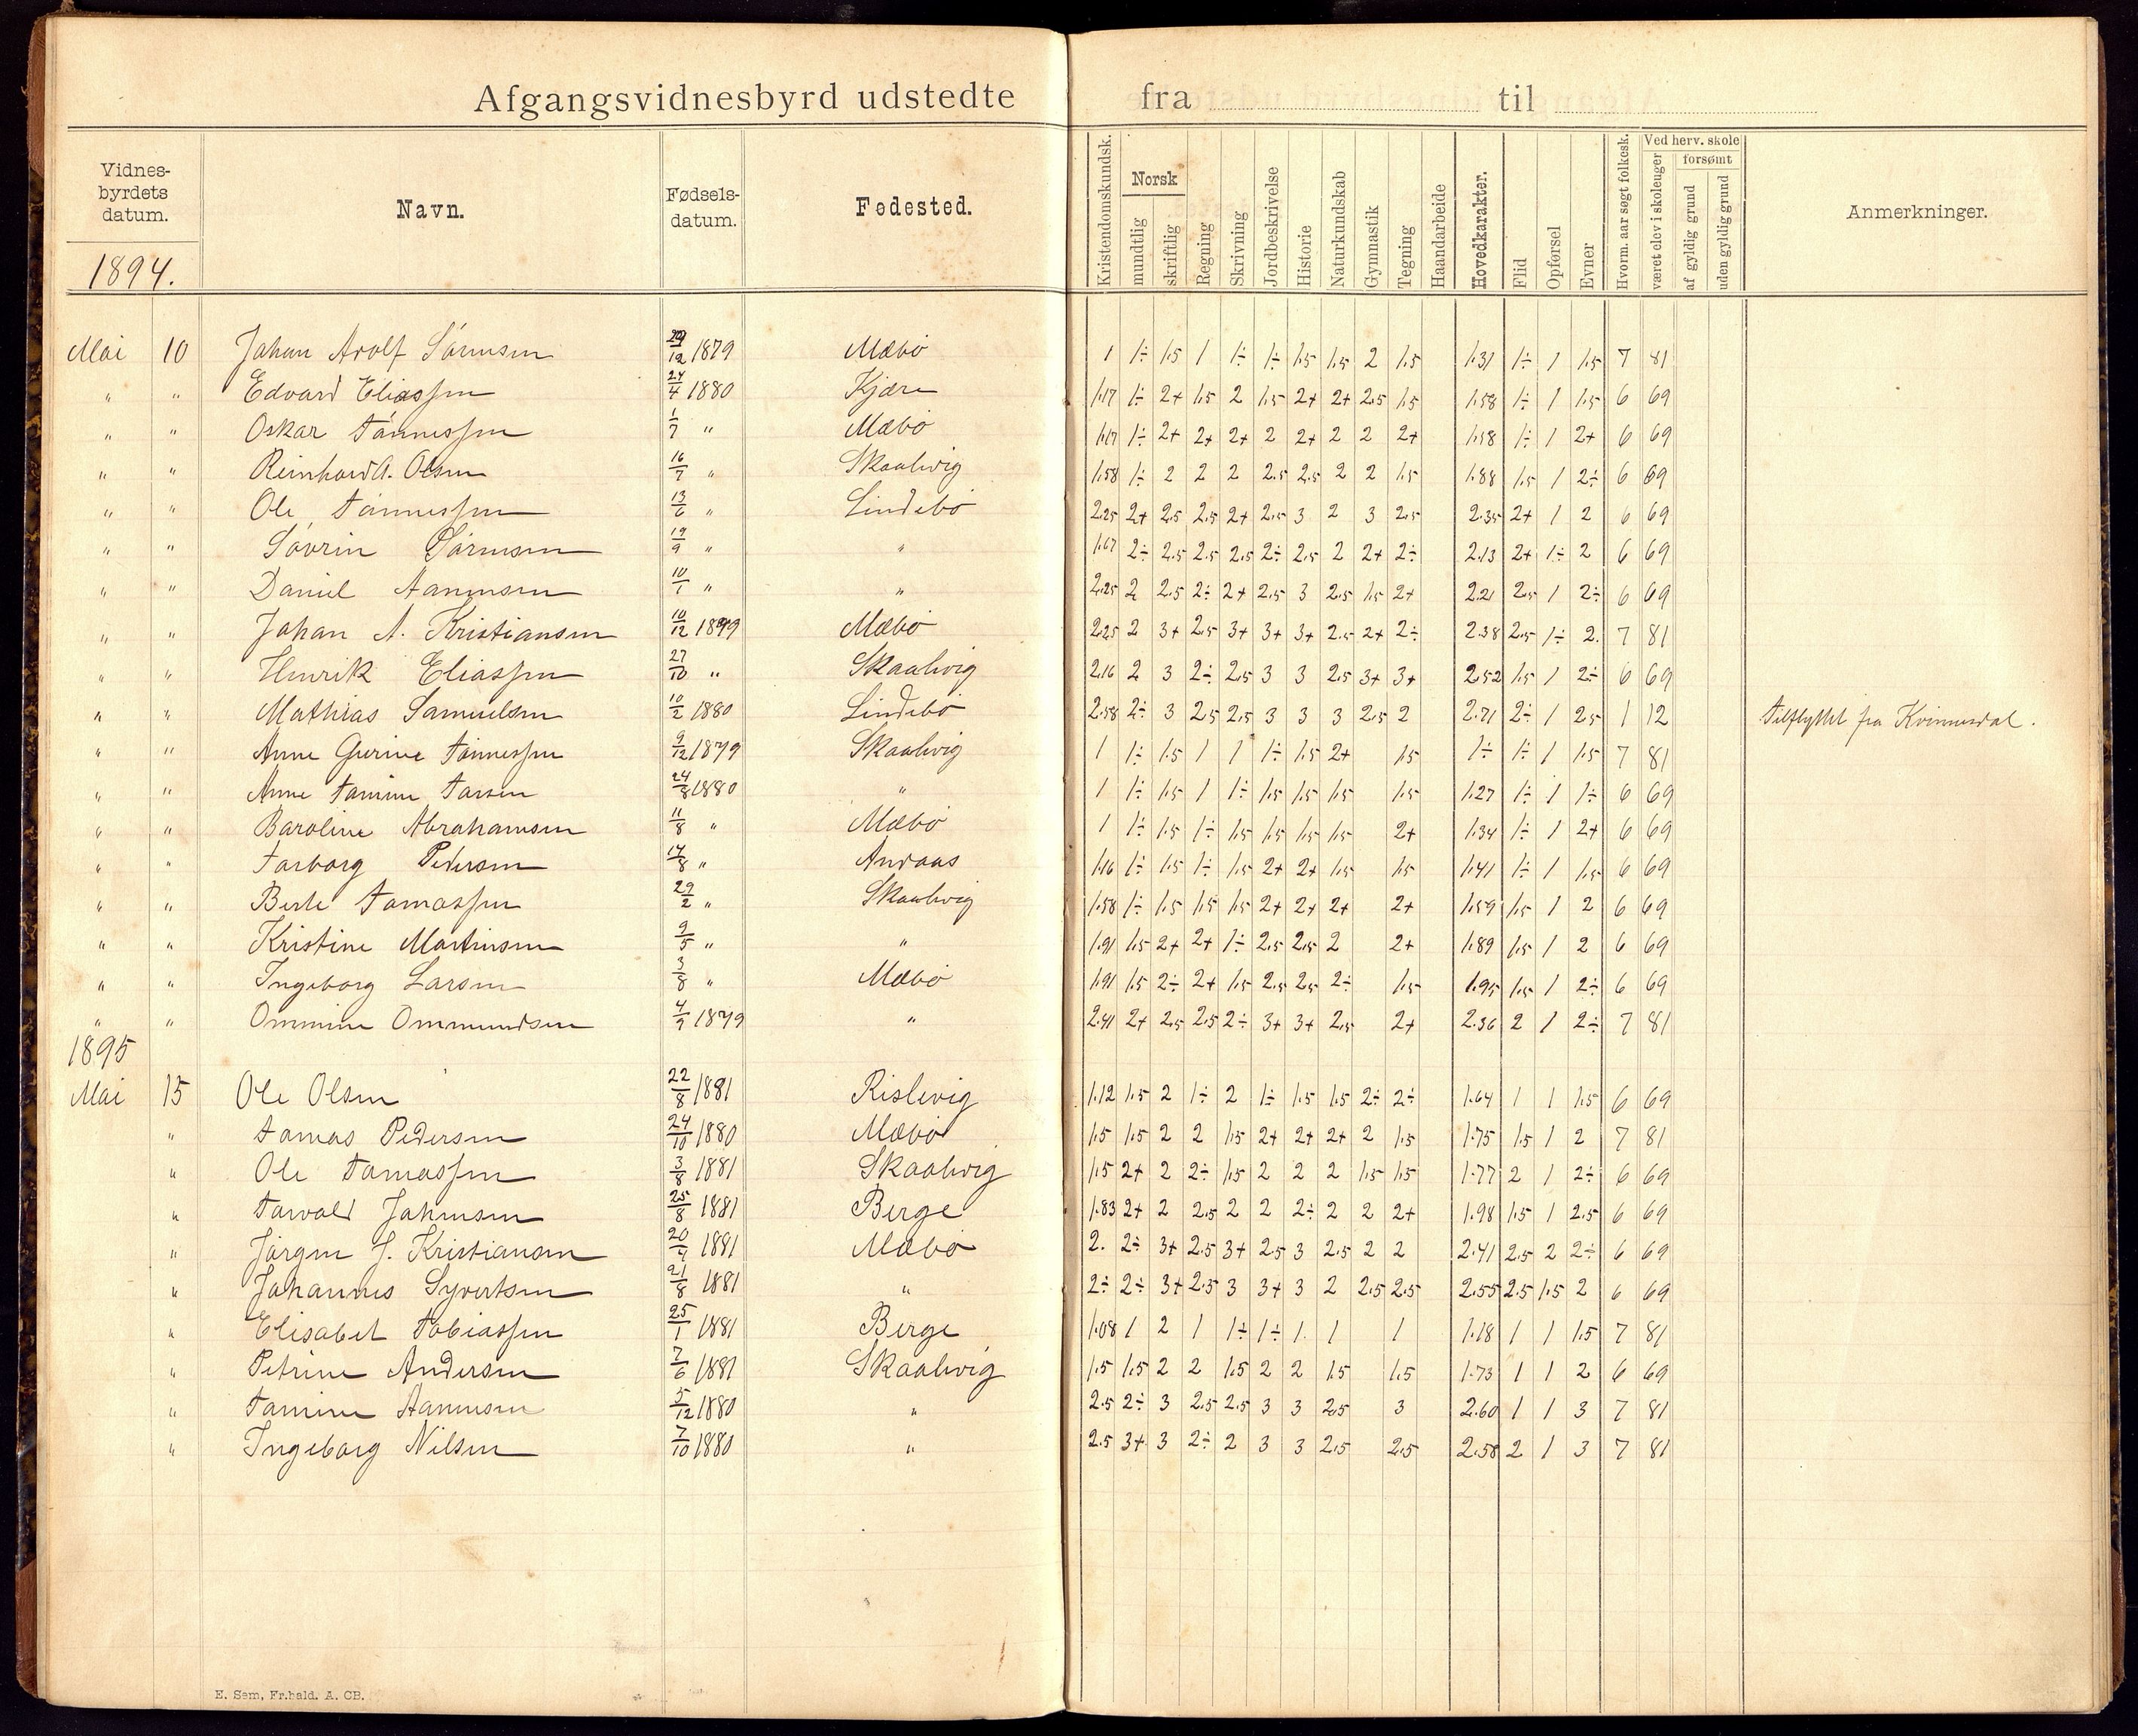 Afgangsvidnesbyrd udstedte fra til
Vidnes-
byrdets
datum.
Navn.
Fødsels-
datum.
Fødested.
Kristendomskundsk.
Norsk
mundtlig
skriftlig
Regning
Skrivning
Jordbeskrivelse
Historie
Naturkundskab
Gymnastik
Tegning
Haandarbeide
Hovedkarakter.
Flid
Opførsel
Evner
Hvorm. aar søgt folkesk.
Ved herv. skole
været elev i skoleuger
forsømt
af gyldig grund
uden gyldig grund
Anmerkninger.
1894.
Mai 10 Johan Arolf Sørensen 12 1879 Mæbø 1 1÷ 1.5 1 1÷ 1÷ 1.5 1.5 2 1.5 1.31 1÷ 1 1.5 7 81
" " Edvard Eliassen 24/4 1880 Kjære 1.17 1÷ 2+ 1.5 2 1.5 2+ 2+ 2.5 1.5 1.58 1÷ 1 1.5 6 69
" " Oskar Tønnessen 1/7 " Mæbø 1.17 1÷ 2+ 2+ 2+ 2 2+ 2 2 2+ 1.58 1÷ 1 2+ 6 69
" " Reinhard A. Olsen 16/7 " Skaalevig 1.58 1÷ 2 2 2 2.5 2.5 2 2 1.5 1.88 1.5 1 2÷ 6 69
" " Ole Tønnessen 13/6 " Lindebø 2.25 2+ 2.5 2.5 2+ 2.5 3 2 3 2.5 2.35 2+ 1 2 6 69
" " Søvrin Sørensen 19/9 " " 1.67 2÷ 2.5 2.5 2.5 2÷ 2.5 2 2+ 2÷ 2.13 2+ 1÷ 2 6 69
" " Daniel Aanensen 10/1 " " 2.25 2 2.5 2÷ 2+ 2.5 3 2.5 1.5 2+ 2.21 2.5 1 2÷ 6 69
" " Johan A. Kristiansen 10/12 1879 Mæbø 2.25 2 3+ 2.5 3+ 3+ 3+ 2.5 2+ 2÷ 2.38 2.5 1÷ 2. 7 81
" " Henrik Eliassen 27/10 " Skaalevig 2.16 2 3 2÷ 2.5 3 3 2.5 3+ 3+ 2.52 1.5 1 2÷ 6 69
" " Mathias Samuelsen 10/2 1880 Lindebø 2.58 2÷ 3 2.5 2.5 3 3 3 2.5 2 2.71 2÷ 1 2.5 1 12 Tilflyttet fra Kvinnesdal.
" " Anne Gurine Tønnessen 9/12 1879 Skaalevig 1 1÷ 1.5 1 1 1÷ 1.5 2+ 1.5 1÷ 1÷ 1 1.5 7 81
" " Anne Tomine Larsen 24/8 1880 " 1 1÷ 1.5 1 1÷ 1.5 1.5 1.5 1.5 1.27 1÷ 1 1÷ 6 69
" " Baroline Abrahamsen 11/8 " Mæbø 1 1÷ 1.5 1÷ 1.5 1.5 1.5 1.5 2+ 1.34 1÷ 1 2+ 6 69
" " Torborg Pedersen 14/8 " Andaas 1.16 1÷ 1.5 1÷ 1.5 2+ 2+ 1.5 1.5 1.41 1÷ 1 1.5 6 69
" " Berte Tomassen 29/2 " Skaalevig 1.58 1÷ 1.5 1.5 1.5 2+ 2+ 2+ 2+ 1.59 1.5 1 2 6 69
" " Kristine Martinsen 9/5 " " 1.91 1.5 2+ 2+ 1÷ 2.5 2.5 2 2+ 1.89 1.5 1 2 6 69
" " Ingeborg Larsen 3/8 " Mæbø 1.91 1.5 2÷ 2+ 1.5 2.5 2.5 2÷ 1.5 1.95 1.5 1 2÷ 6 69
" " Ommine Ommundsen 4/9 1879 " 2.41 2+ 2.5 2.5 2÷ 3+ 3+ 2.5 2+ 2.36 2 1 2÷ 7 81
1895
Mai 15 Ole Olsen 22/8 1881 Rislevig 1.12 1.5 2 1÷ 2 1÷ 1.5 1.5 2÷ 2÷ 1.64 1 1 1.5 6 69
" Tomas Pedersen 24/10 1880 Mæbø 1.5 1.5 2 2 1.5 2+ 2+ 2+ 2 1.5 1.75 1.5 1 2 7 81
" Ole Tomassen 3/8 1881 Skaalevig 1.5 2+ 2 2÷ 1.5 2 2 2 1.5 1.5 1.77 2 1 2÷ 6 69
" Torvald Johnsen 25/8 1881 Berge 1.83 2+ 2 2.5 2 2 2÷ 2 2 2+ 1.98 1.5 1 2.5 6 69
" Jørgen J. Kristiansen 20 1881 Mæbø 2. 2÷ 3+ 2.5 3+ 2.5 3 2.5 2 2 2.41 2.5 2 2÷ 6 69
" Johannes Syvertsen 21/8 1881 " 2÷ 2÷ 3+ 2.5 3 3+ 3 2 2.5 2.5 2.55 2.5 1.5 2 6 69
" Elisabet Tobiassen 25/1 1881 Berge 1.08 1 2 1 1÷ 1÷ 1. 1 1 1.18 1 1 1.5 7 81
" Petrine Andersen 7/6 1881 Skaalevig 1.5 1.5 2 2 1.5 2 2 1.5 1.5 1.73 1 1 2 6 69
" Tomine Aanensen 5/12 1880 " 2.5 2÷ 3 2.5 2.5 3 3 2.5 3 2.60 1 1 3 7 81
" Ingeborg Nilsen 7/10 1880 " 2.5 3+ 3 2÷ 2 3 3 2.5 2.5 2.58 2 1 3 7 81
E. Sem, Fr.hald. A. CB.